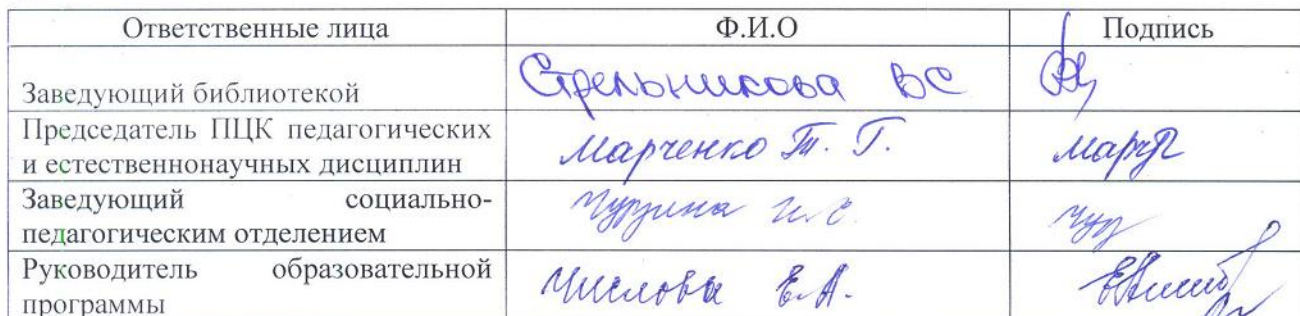 Ответственные лица Ф.И.О Подпись
Заведующий библиотекой Стрельникова ВС
Председатель ПЦК педагогических
и естественнонаучных дисциплин Марченко Т. Г.
Заведующий социально-
педагогическим отделением
Руководитель образовательной
программы Числова Е.А.